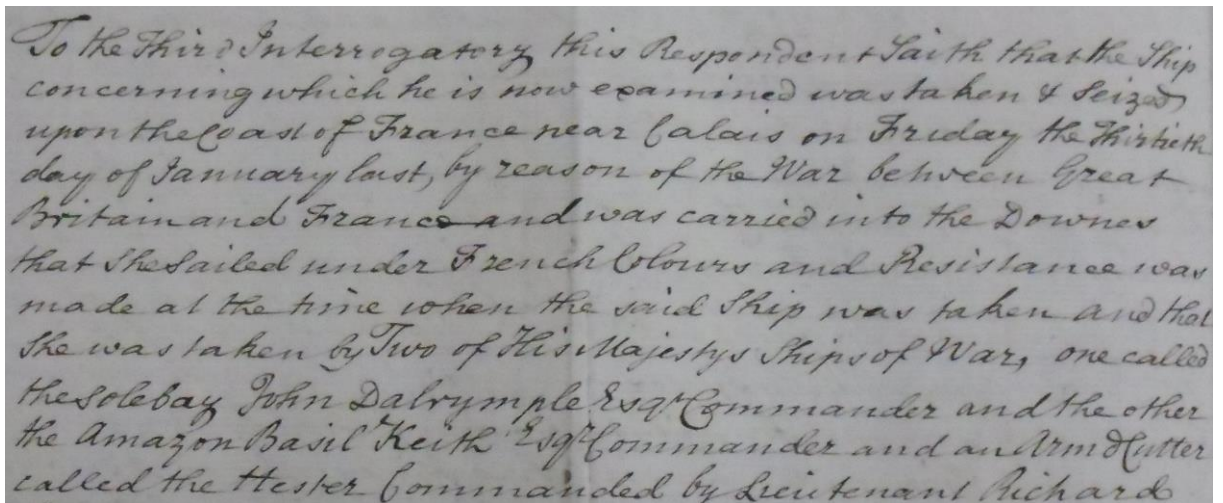 To the Third Interrogatory this Respondent Saith that the Ship
concerning which he is now examined was taken & Seized
upon the Coast of France near Calais on Friday the Thirtieth
day of January last, by reason of the War between Great
Britain and France and was carried into the Downes
that She Sailed under French Colours and Resistance was
made at the time when the said Ship was taken and that
She was taken by Two of His Majestys Ships of War, one called
the Solebay John Dalrymple Esqr. Commander and the other
the Amazon Basil Keith Esqr. Commander and an Armd Cutter
called the Hester Commanded by Lieutenant Richard